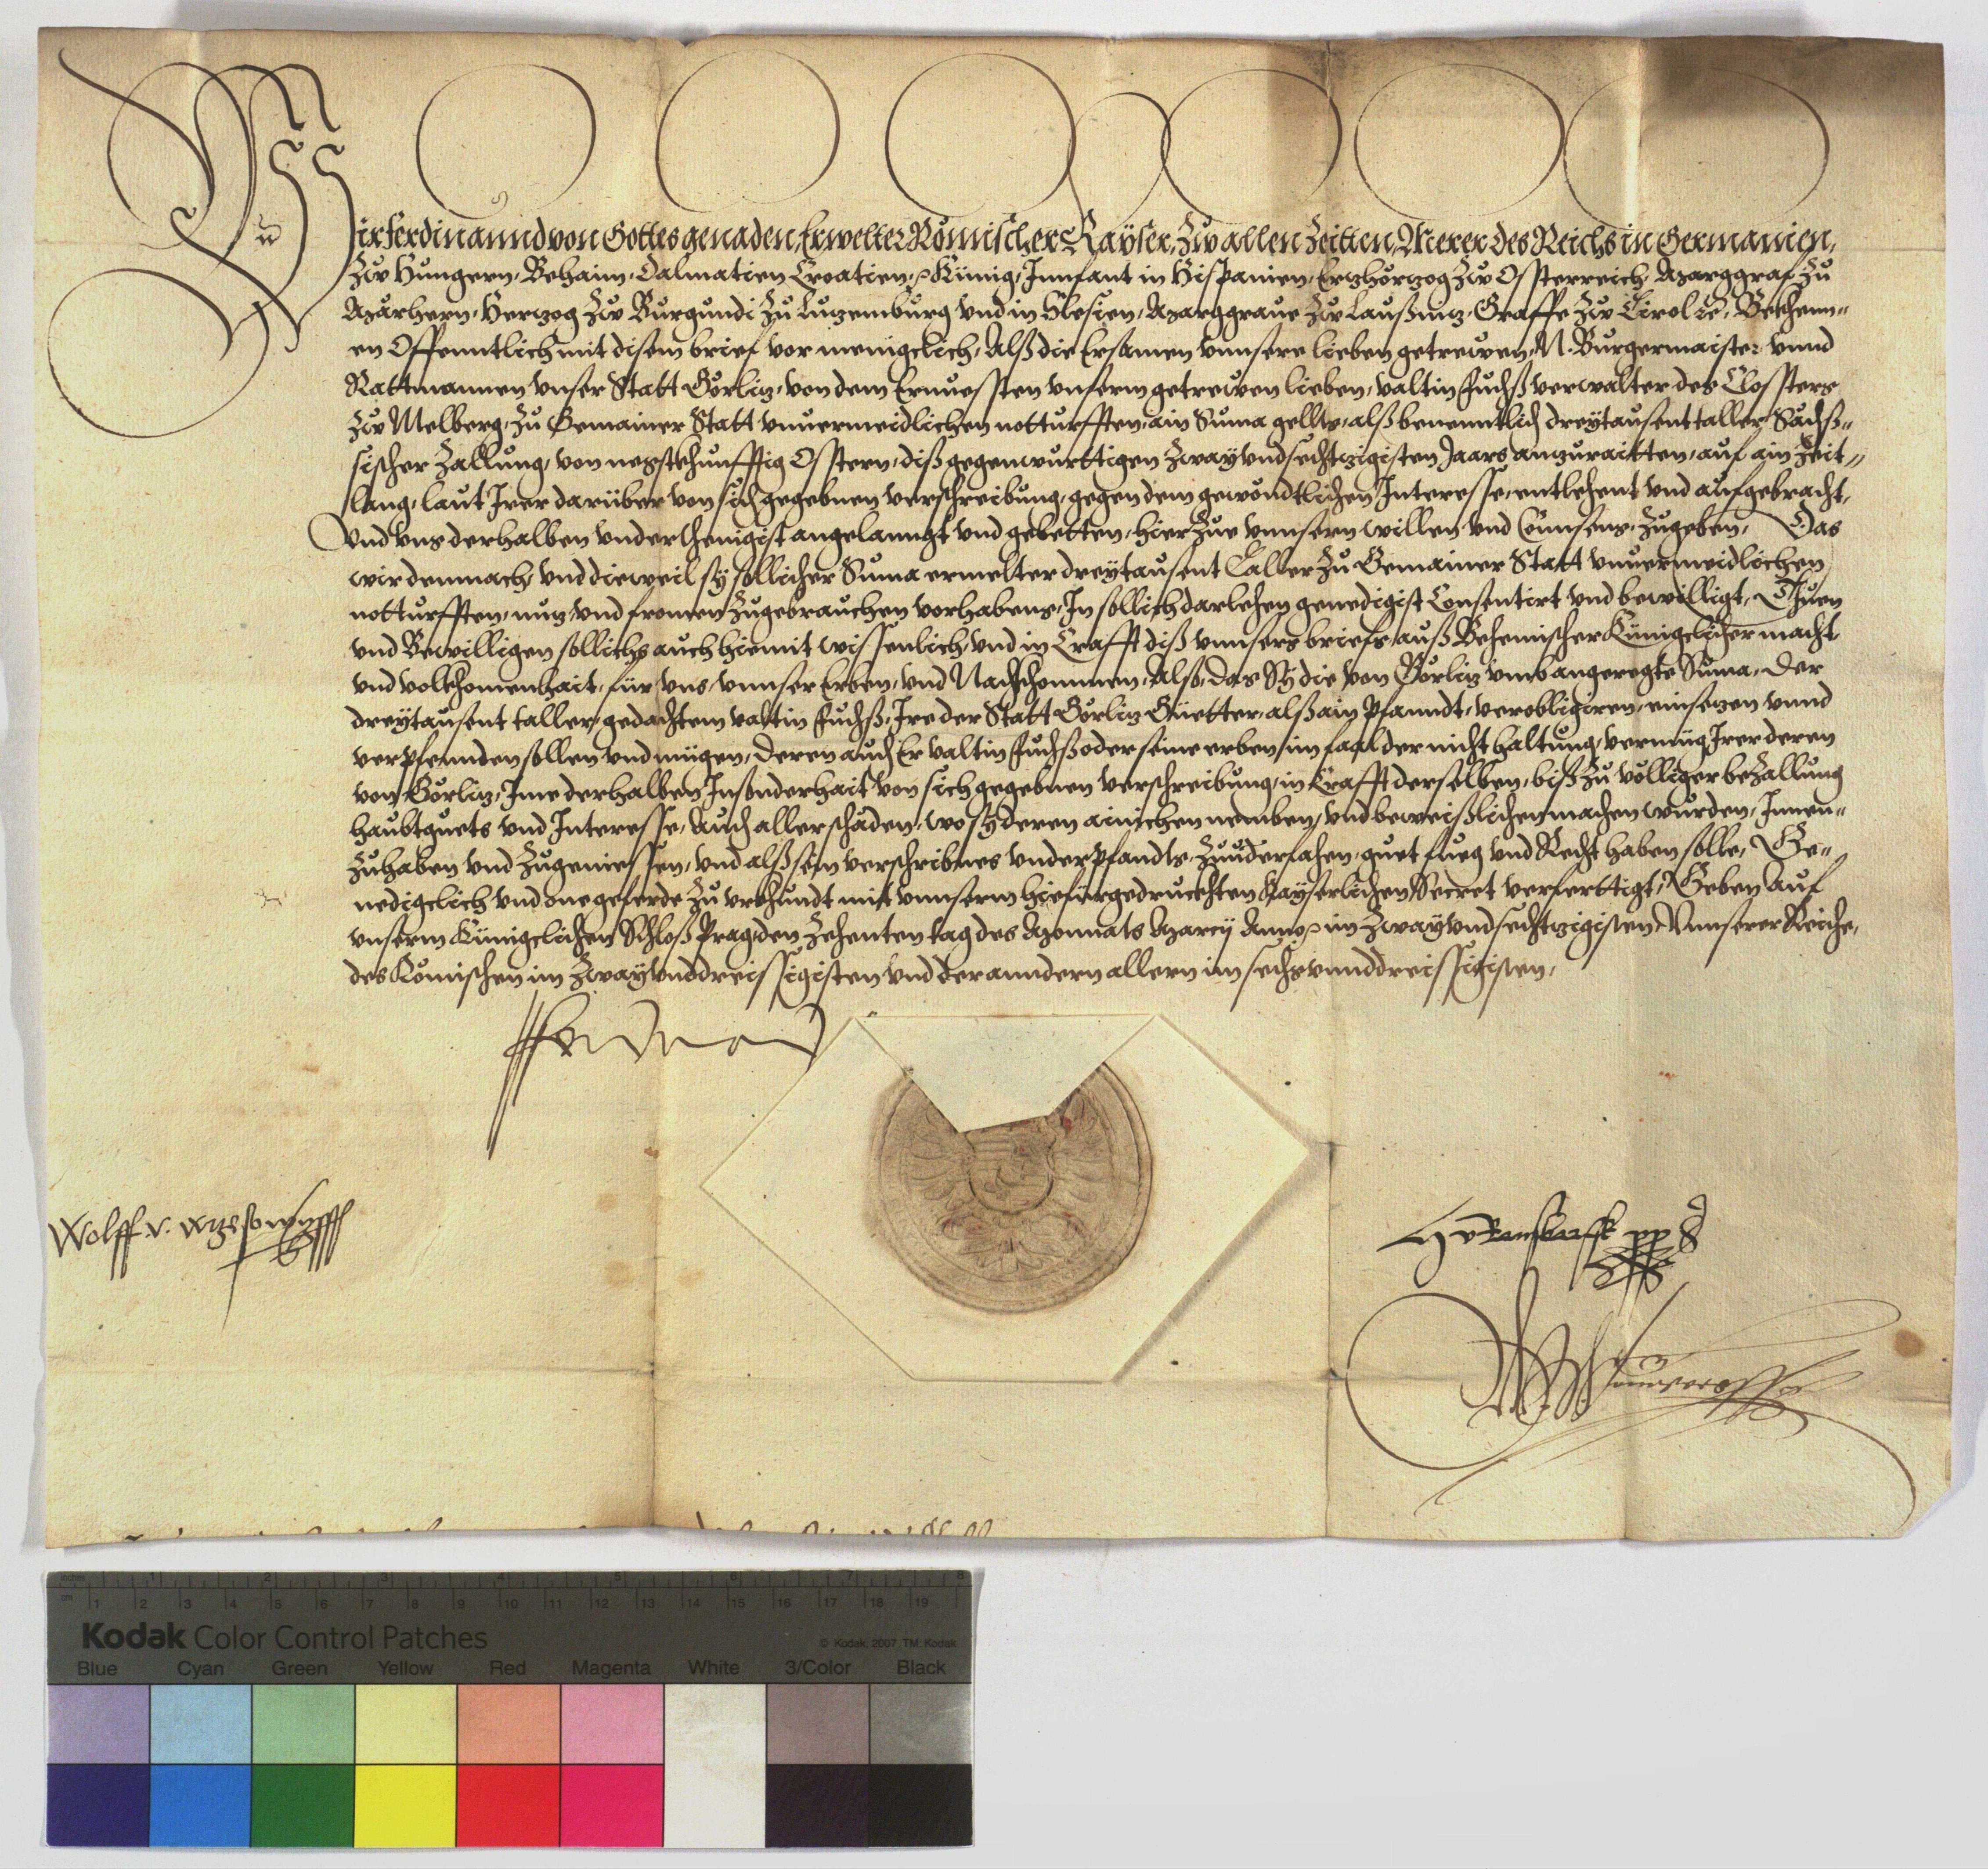 Wir Ferdinannd von Gottes genaden, Erwelter Römischer Kayser, zw allen Zeitten, Merer des Reichs in Germanien,
zw Hungern, Behaim, Dalmatien Croatien, Künig, Innfant in Hispanien, Ertzhörtzog zw Osterreich, Marggraf zu
Märhern, Hertzog zw Burgundi zu Lutzemburg vnd in Slesien, Marggraue zw Laußnitz, Graffe zw Tirol &c. Bekhenn-
en Offenntlich mit disem brief vor menigclich, Alß die Ersamen vnnsere lieben getrewen, N. Burgermaister vnnd
Rattmannen vnser Statt Görlitz, von dem Ernuessten vnserm getrewen lieben, Valtin Fuchß verwalter des Closters
zw Melberg, zu Gemainer Statt vnuermeidlichen notturfften, ain Suma gellts, alß benenntlich dreytausent taller Sachß-
sischer Zallung, von negstkhunfftig Osstern, diß gegenwurttigen Zway vnd sechtzigisten Jaars anzuraitten, auf ain Zeit-
lang, laut Irer darüber von sich gegebnen verschreibung, gegen dem gewöndtlichen Interesse, entlehent vnd aufgebracht,
Vnd vns derhalben vnderthenigist angelanngt vnd gebetten, hierzue vnnsern willen vnd Consens, zugeben, Das
wir demnach, vnd dieweil sy sollicher Suma ermelter dreytausent Taller zu Gemainer Statt vnuermeidlichen
notturfften, nutz vnd fromen zugebrauchen vorhabens, In sollich darlehen genedigist Consentirt vnd bewilligt, Thuen
vnd Bewilligen sollichs auch hiemit wissenlich vnd in Crafft diß vnnsers briefs, auß Behemischer Künigclicher macht
vnd volkhomenhait, für vns, vnnser Erben, vnd Nachkhommen, Also, das Sy die von Görlitz vmb angeregte Suma, der
dreytausent taller, gedachtem Valtin Fuchß, Ire der Statt Görlitz Güetter, alß ain Pfanndt, verobligiren, einsetzen vnnd
verpfennden sollen vnd mügen, Deren auch Er Valtin Fuchß oder seine erben, im faal der nicht haltung, vermüg Irer deren
von Görlitz, Ime derhalben Insonderhait von sich gegebnen verschreibung, in Krafft derselben, biß zu völliger bezallung
haubtguets vnd Interesse, Auch aller schäden, wo sy deren ainichen nemben, vnd beweißlichen machen wurden, Innen-
zuhaben vnd zugeniessen, vnd alß sein verschribnes vnderpfandts, zuuderfahen, guet fueg vnd Recht haben solle, Ge-
nedigclich vnd one geferde, Zu vrkhundt mit vnnserm hiefürgedruckhten Kayserlichen Secret verferttigt, Geben auf
vnserm Künigclichen Schloß Prag, den Zehenten tag des Monnats Marcy Anno im Zway vnd sechtzigisten, Vnnserer Reiche,
des Römischen im Zway vnd dreissigisten vnd der anndern allern im sechsvnnddreissigisten,
Ferdinand
Wolff v. Wrzesowytz
Kodak Color Control Patches
© Kodak, 2007 TM: Kodak
Blue Cyan Green Yellow Red Magenta White 3/Color Black